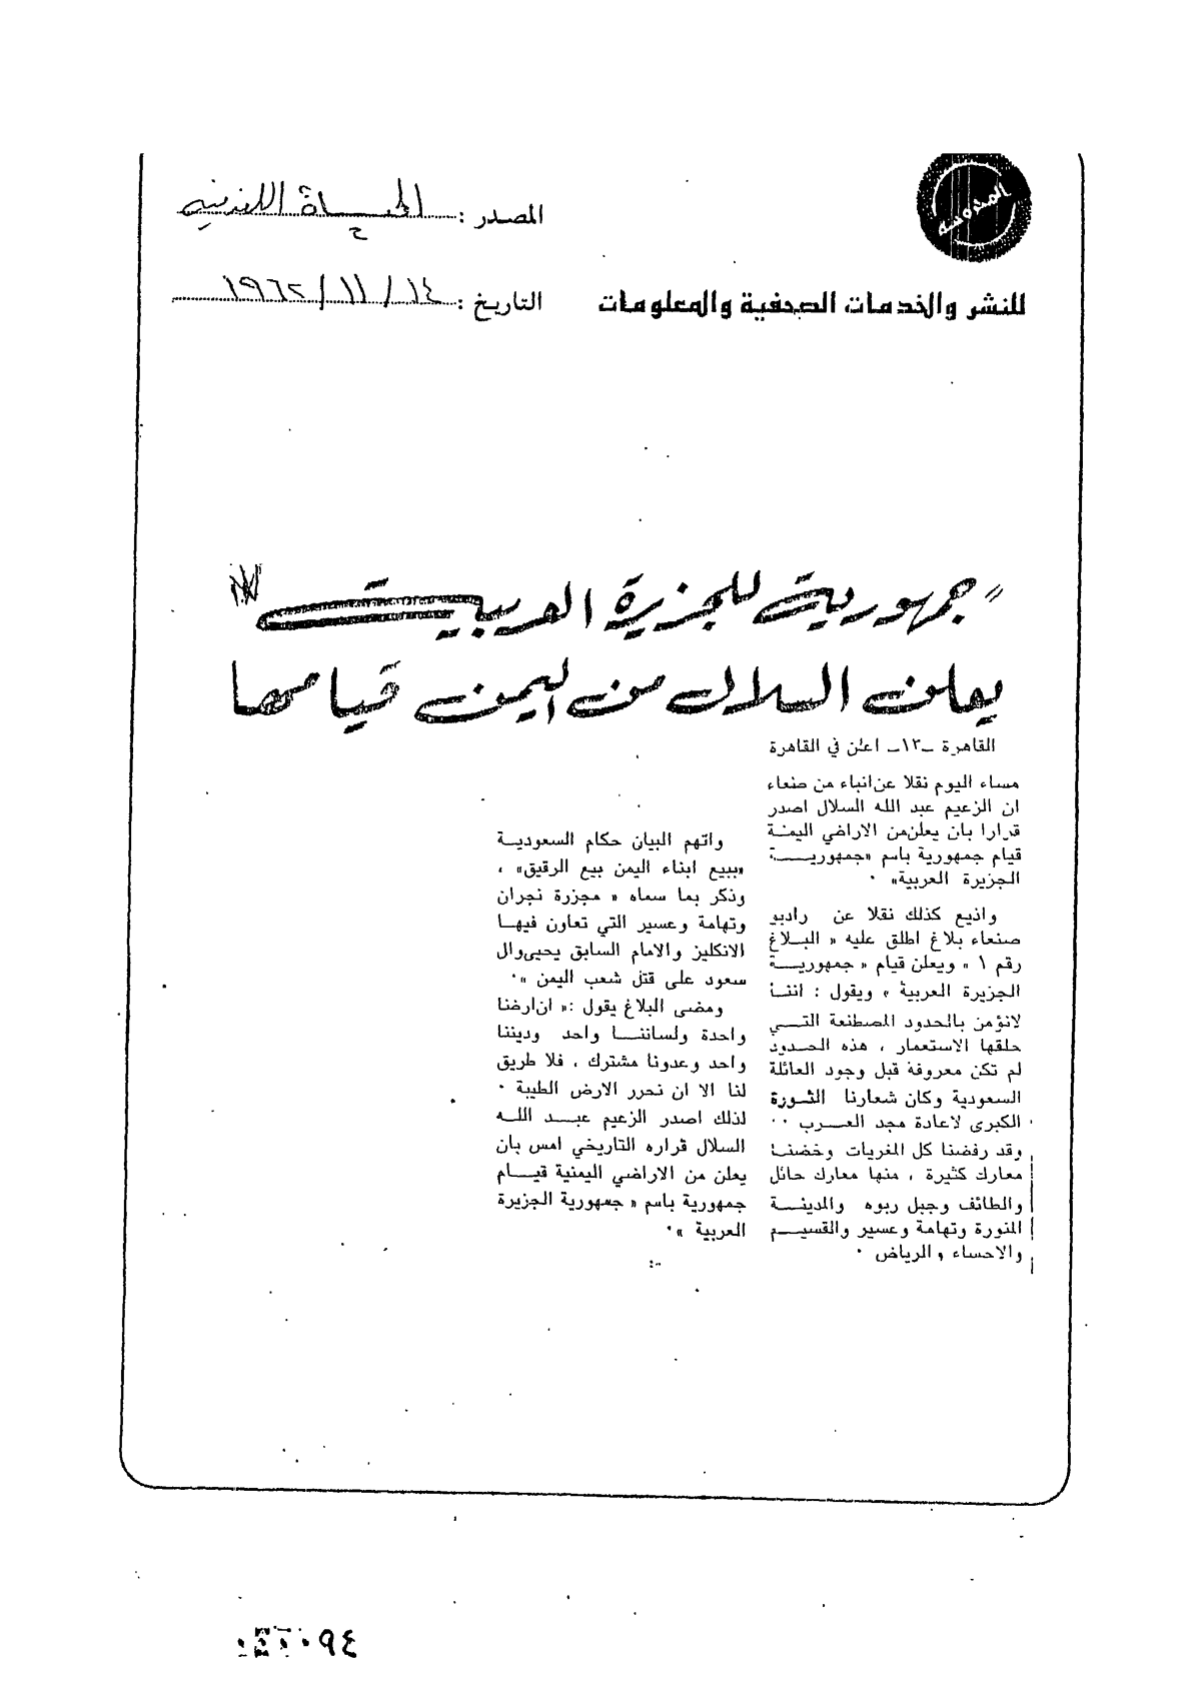 المحروسة
للنشر والخدمات الصحفية والمعلومات
المصدر : الحياة اللندنيه
التاريخ : ١٤ / ١١ / ١٩٦٢
" جمهورية للجزيرة العربية "
يعلن السلال من اليمن قيامها
القاهرة -١٣- اعلن في القاهرة
مساء اليوم نقلا عن انباء من صنعاء
ان الزعيم عبد الله السلال اصدر
قرارا بان يعلن من الاراضي اليمنة
قيام جمهورية باسم «جمهوريـــة
الجزيرة العربية» ·
واذيع كذلك نقلا عن راديو
صنعاء بلاغ اطلق عليه « البــلاغ
رقم ١ » ويعلن قيام « جمهوريــة
الجزيرة العربية » ويقول : اننـا
لانؤمن بالحدود المصطنعة التــي
خلقها الاستعمار ، هذه الحـدود
لم تكن معروفة قبل وجود العائلة
السعودية وكان شعارنا الثـورة
الكبرى لاعادة مجد العـــرب ··
وقد رفضنا كل المغريات وخضنـا
معارك كثيرة ، منها معارك حائل
والطائف وجبل ربوه والمدينــة
المنورة وتهامة وعسير والقسيــم
والاحساء والرياض ·
واتهم البيان حكام السعوديــة
«ببيع ابناء اليمن بيع الرقيق» ،
وذكر بما سماه « مجزرة نجران
وتهامة وعسير التي تعاون فيهـا
الانكليز والامام السابق يحيى وال
سعود على قتل شعب اليمن »·
ومضى البلاغ يقول :« ان ارضنا
واحدة ولساننـــا واحد وديننا
واحد وعدونا مشترك ، فلا طريق
لنا الا ان نحرر الارض الطيبة ·
لذلك اصدر الزعيم عبــد اللــه
السلال قراره التاريخي امس بان
يعلن من الاراضي اليمنية قيــام
جمهورية باسم « جمهورية الجزيرة
العربية »·